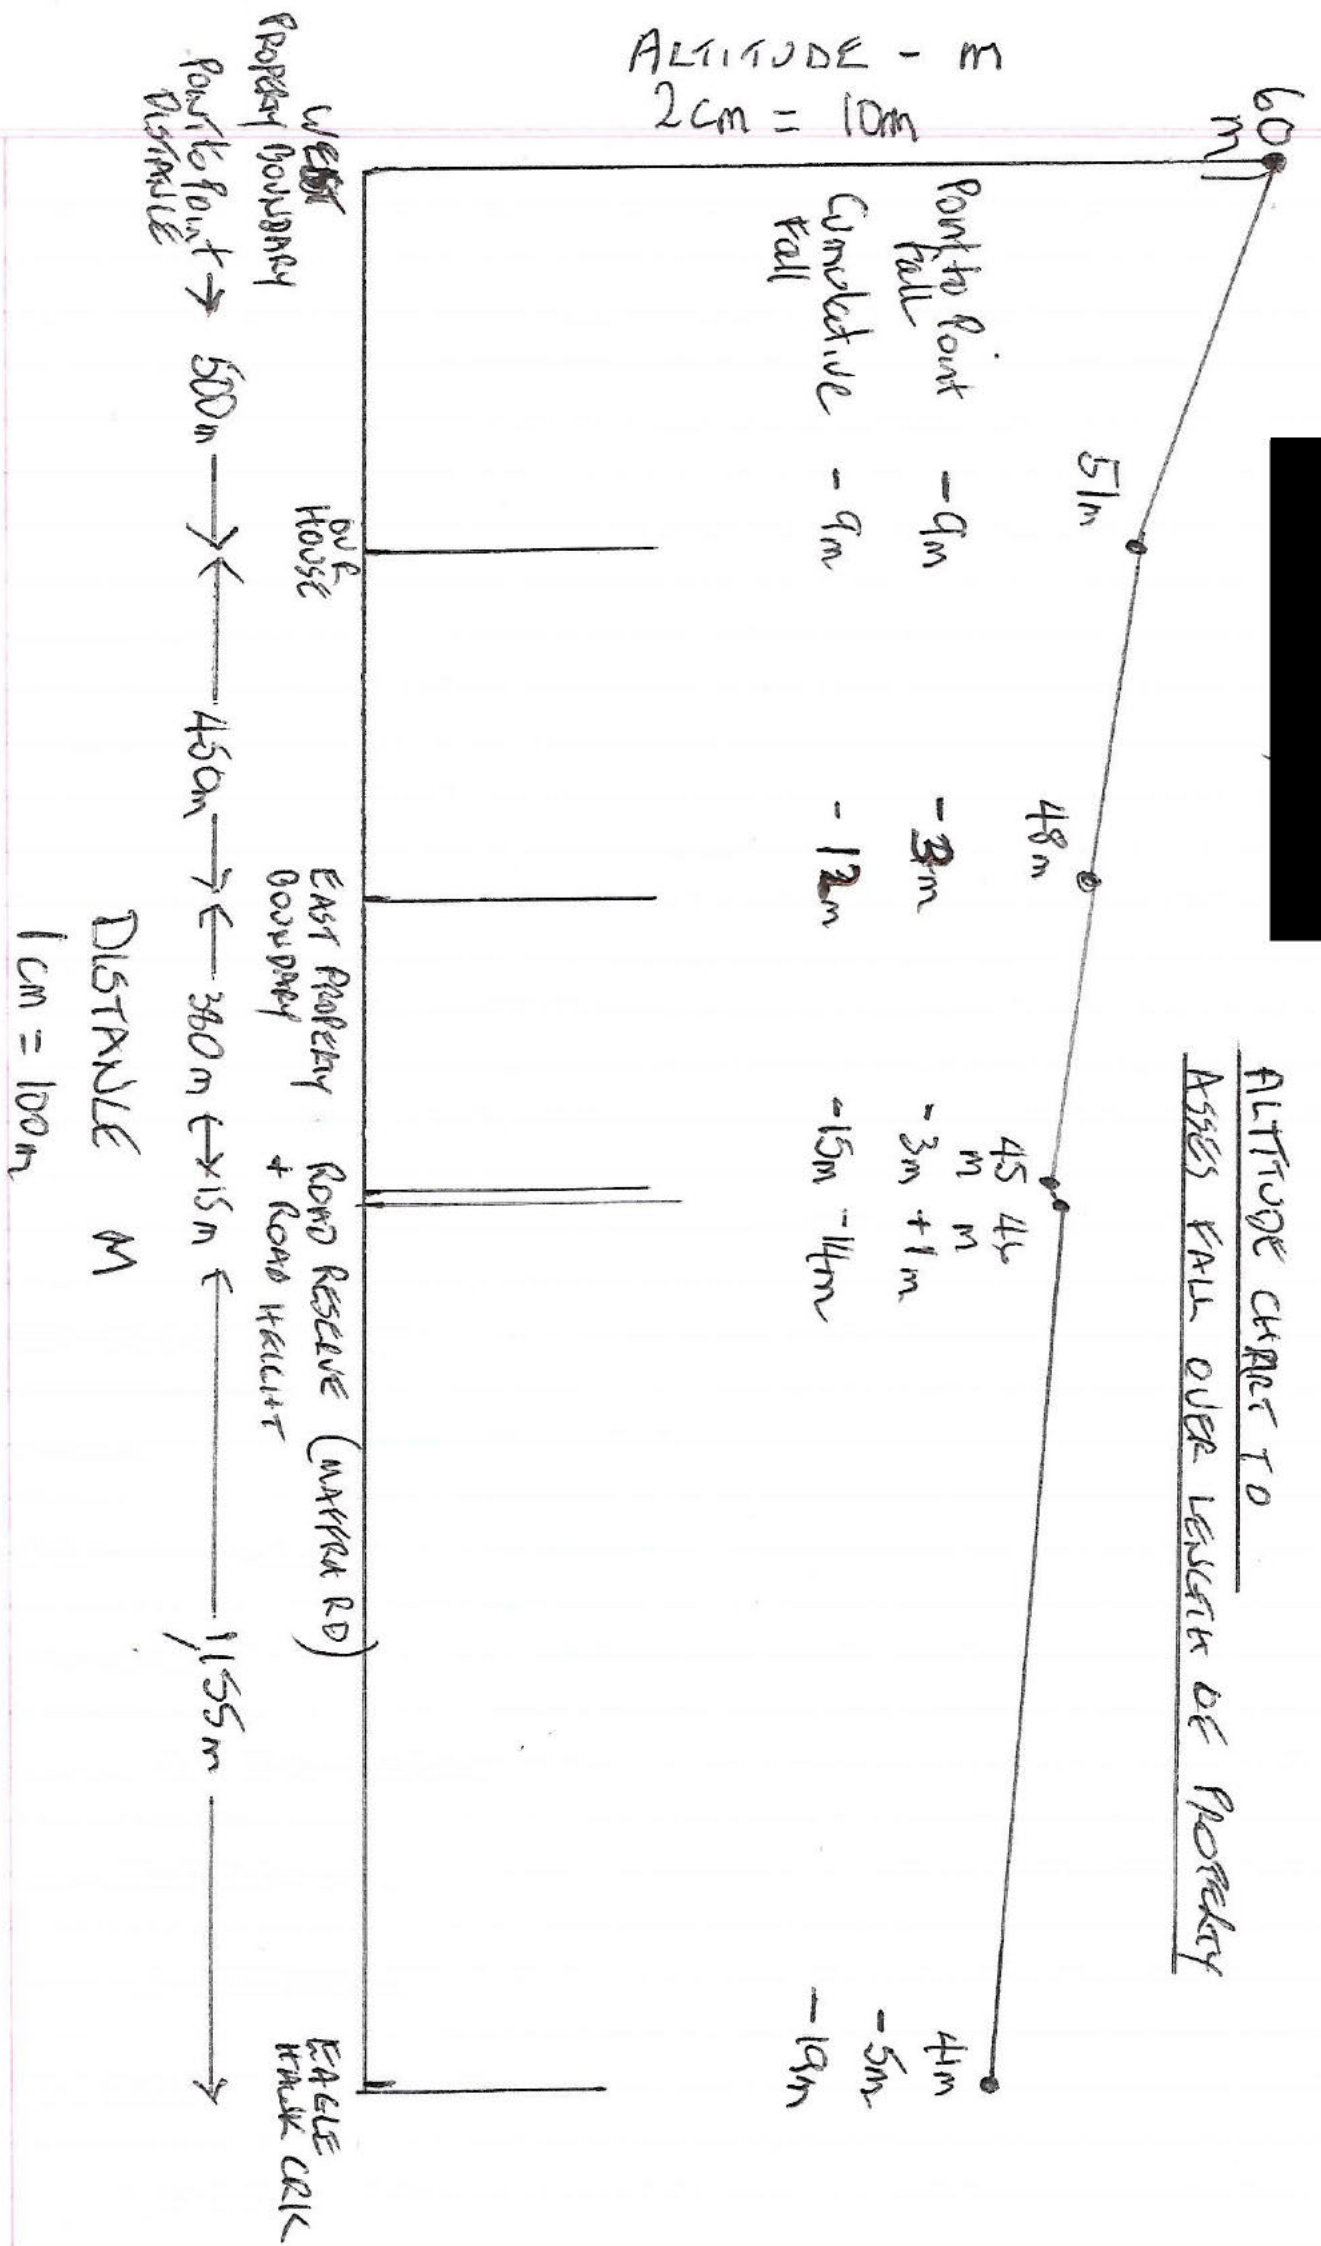 ALTITUDE CHART TO
ASSES FALL OVER LENGTH OF PROPERTY
ALTITUDE - m
2cm = 10m
60
m
51m
48m
45
m
46
m
41m
Point to Point
Fall
-9m
-3m
-3m
+1m
-5m
Cumulative
Fall
-9m
-12m
-15m
-14m
-19m
WEST
PROPERTY BOUNDARY
OUR
HOUSE
EAST PROPERTY
BOUNDARY
ROAD RESERVE (MAFFRA RD)
+ ROAD HEIGHT
EAGLE
HAWK CRK
Point to Point
DISTANCE
500m
450m
15m
1,155m
DISTANCE M
1cm = 100m